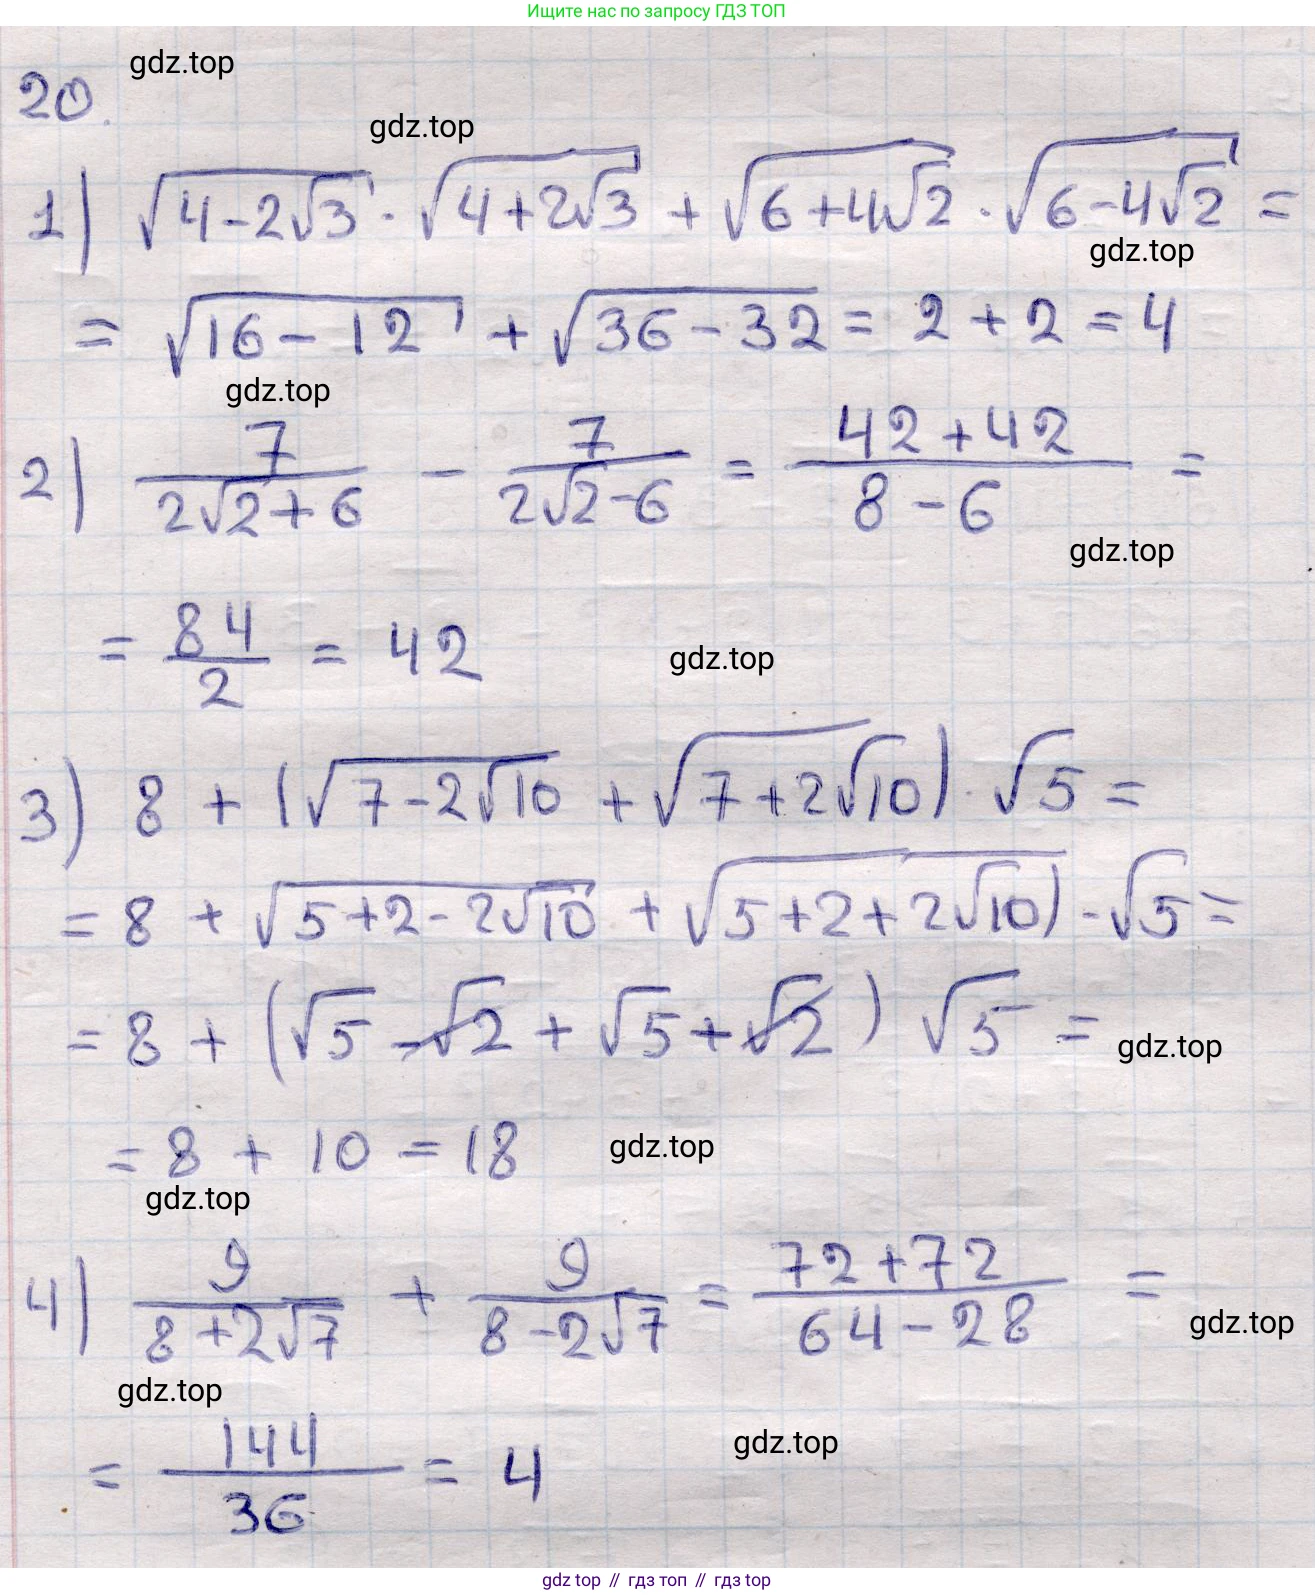 Ищите нас по запросу ГДЗ ТОП
gdz.top
20.
gdz.top
1) √(4-2√3) · √(4+2√3) + √(6+4√2) · √(6-4√2) =
gdz.top
= √(16-12) + √(36-32) = 2 + 2 = 4
gdz.top
2) 7/(2√2+6) - 7/(2√2-6) = (42+42)/(8-6) =
gdz.top
= 84/2 = 42
gdz.top
3) 8 + (√(7-2√10) + √(7+2√10)) · √5 =
= 8 + √(5+2-2√10) + √(5+2+2√10)) · √5 =
= 8 + (√5 - √2 + √5 + √2) √5 =
gdz.top
= 8 + 10 = 18
gdz.top
gdz.top
4) 9/(8+2√7) + 9/(8-2√7) = (72+72)/(64-28) =
gdz.top
gdz.top
= 144/36 = 4
gdz.top
gdz top // гдз топ // gdz top